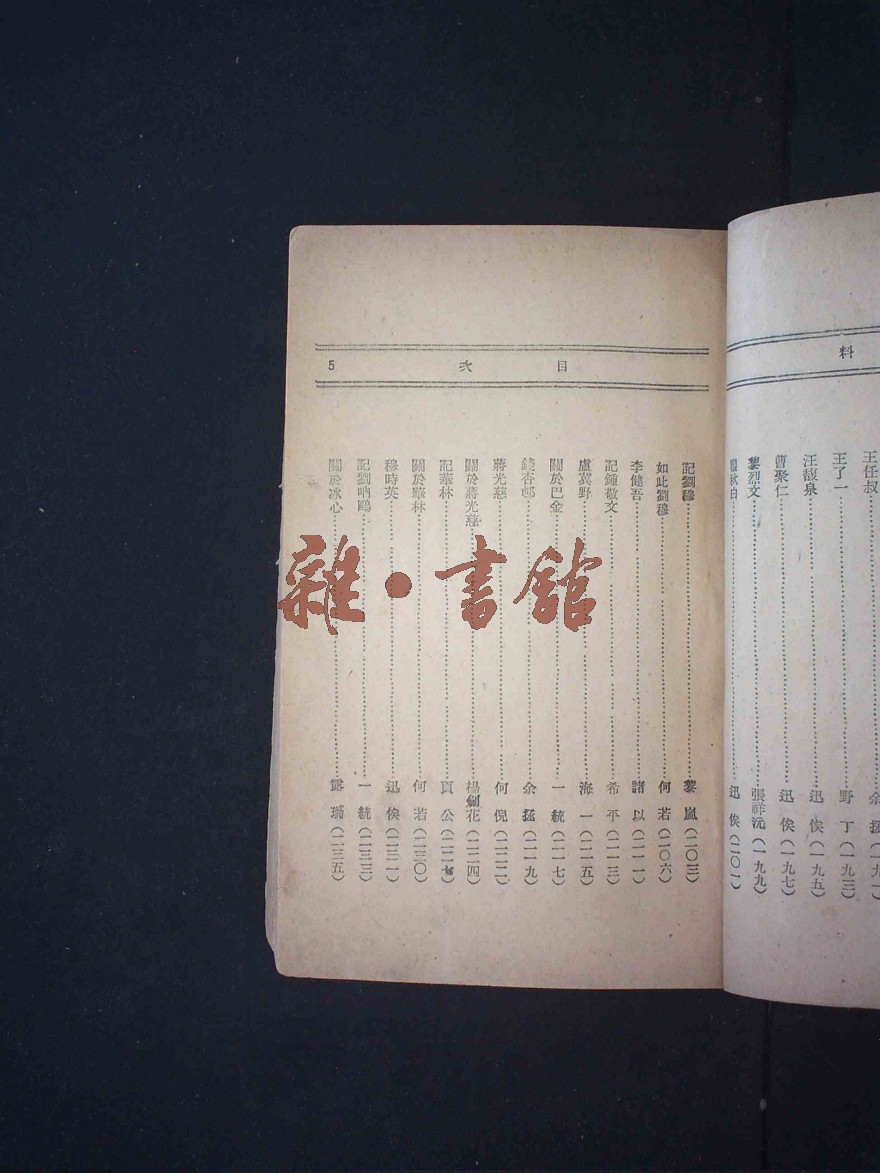 料
王任叔……余 拯(一九一)
王了一……野 丁(一九三)
汪馥泉……迅 俟(一九五)
曹聚仁……迅 俟(一九七)
黎烈文……張祥沅(一九九)
瞿秋白……迅 俟(二〇一)
目 次 5
記劉穆……黎 嵐(二〇三)
如此劉穆……何 若(二〇六)
李健吾……諸 以(二一一)
記鍾敬文……希 平(二一三)
盧冀野……海 一(二一五)
關於巴金……一 統(二一七)
錢杏邨……余 拯(二一九)
蔣光慈……何 倪(二二二)
關於蔣光慈……楊劍花(二二四)
記華林……頁 公(二二七)
關於華林……何 若(二三〇)
穆時英……迅 俟(二三一)
記劉吶鷗……一 統(二三三)
關於冰心……露 瑀(二三五)
雜·書館